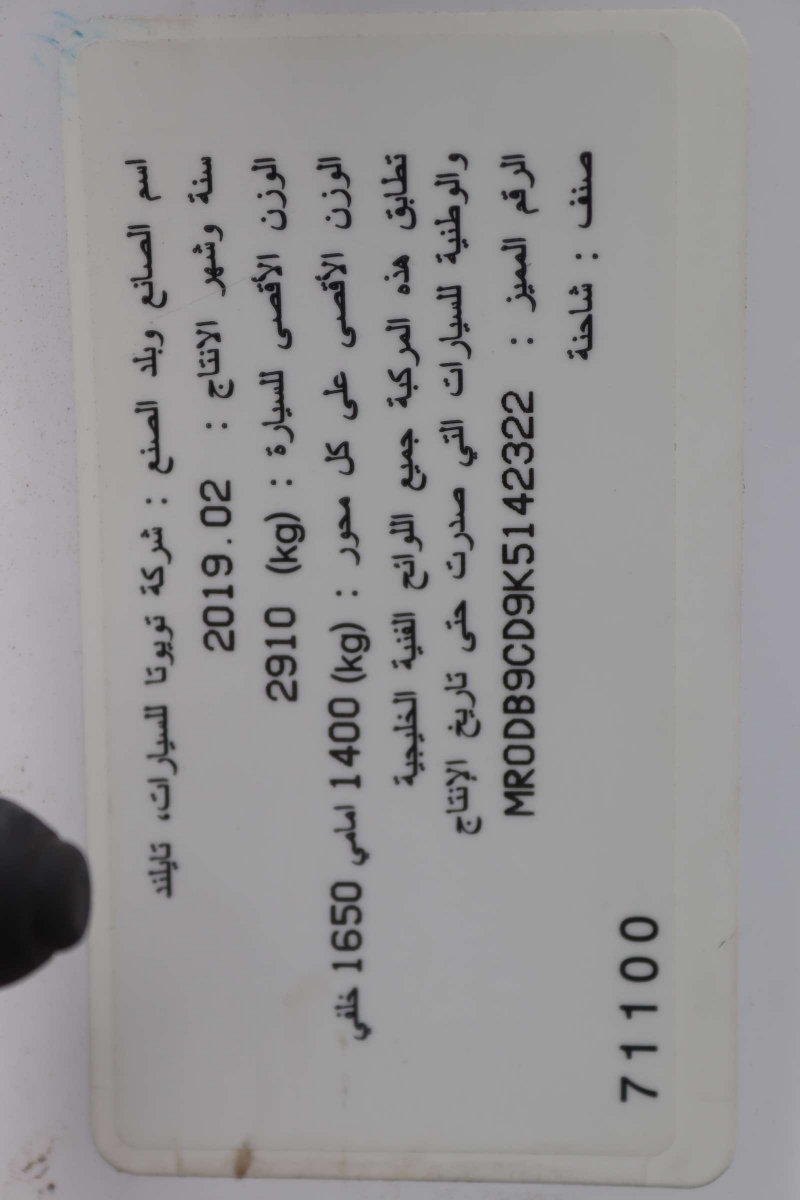 اسم الصانع وبلد الصنع : شركة تويوتا للسيارات، تايلند
سنة وشهر الانتاج : 2019.02
الوزن الأقصى للسيارة : (kg) 2910
الوزن الأقصى على كل محور : (kg) 1400 امامي 1650 خلفي
تطابق هذه المركبة جميع اللوائح الفنية الخليجية
والوطنية للسيارات التي صدرت حتى تاريخ الإنتاج
الرقم المميز : MR0DB9CD9K5142322
صنف : شاحنة
71100